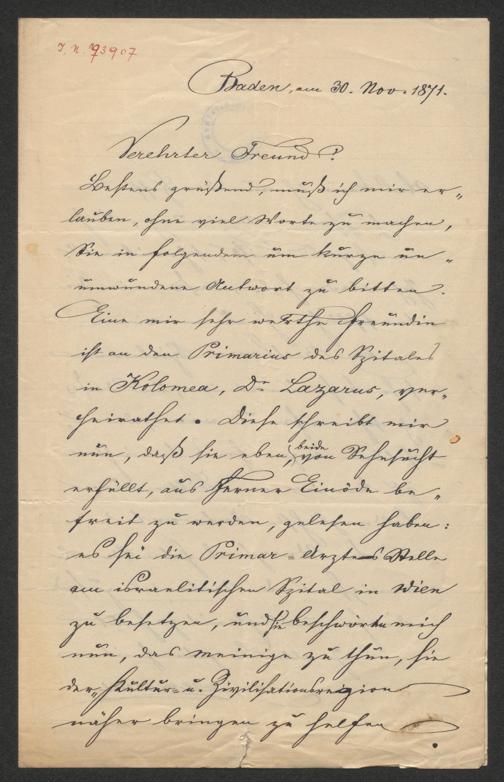 I. N. 93907
Baden, am 30. Nov. 1871.
Verehrter Freund!
Bestens grüßend, muß ich mir er-
lauben, ohne viel Worte zu machen,
Sie in folgendem um kurze un-
umwundene Antwort zu bitten.
Eine mir sehr werthe Freundin
ist an den Primarius des Spitales
in Kolomea, Dr. Lazarus, ver-
heirathet. Diese schreibt mir
nun, daß sie eben, beide von Sehnsucht
erfüllt, aus ferner Einöde be-
freit zu werden, gelesen haben:
es sei die Primar-Arztes Stelle
am israelitischen Spital in Wien
zu besetzen, und sie beschwören mich
nun, das meinige zu thun, sie
der Kultur- u. Zivilisationsregion
näher bringen zu helfen.